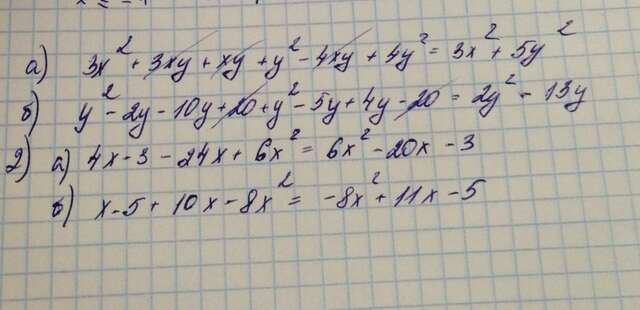 а) 3x² + 3xy + xy + y² - 4xy + 4y² = 3x² + 5y²
б) y² - 2y - 10y + 20 + y² - 5y + 4y - 20 = 2y² - 13y
2) а) 4x - 3 - 24x + 6x² = 6x² - 20x - 3
б) x - 5 + 10x - 8x² = -8x² + 11x - 5